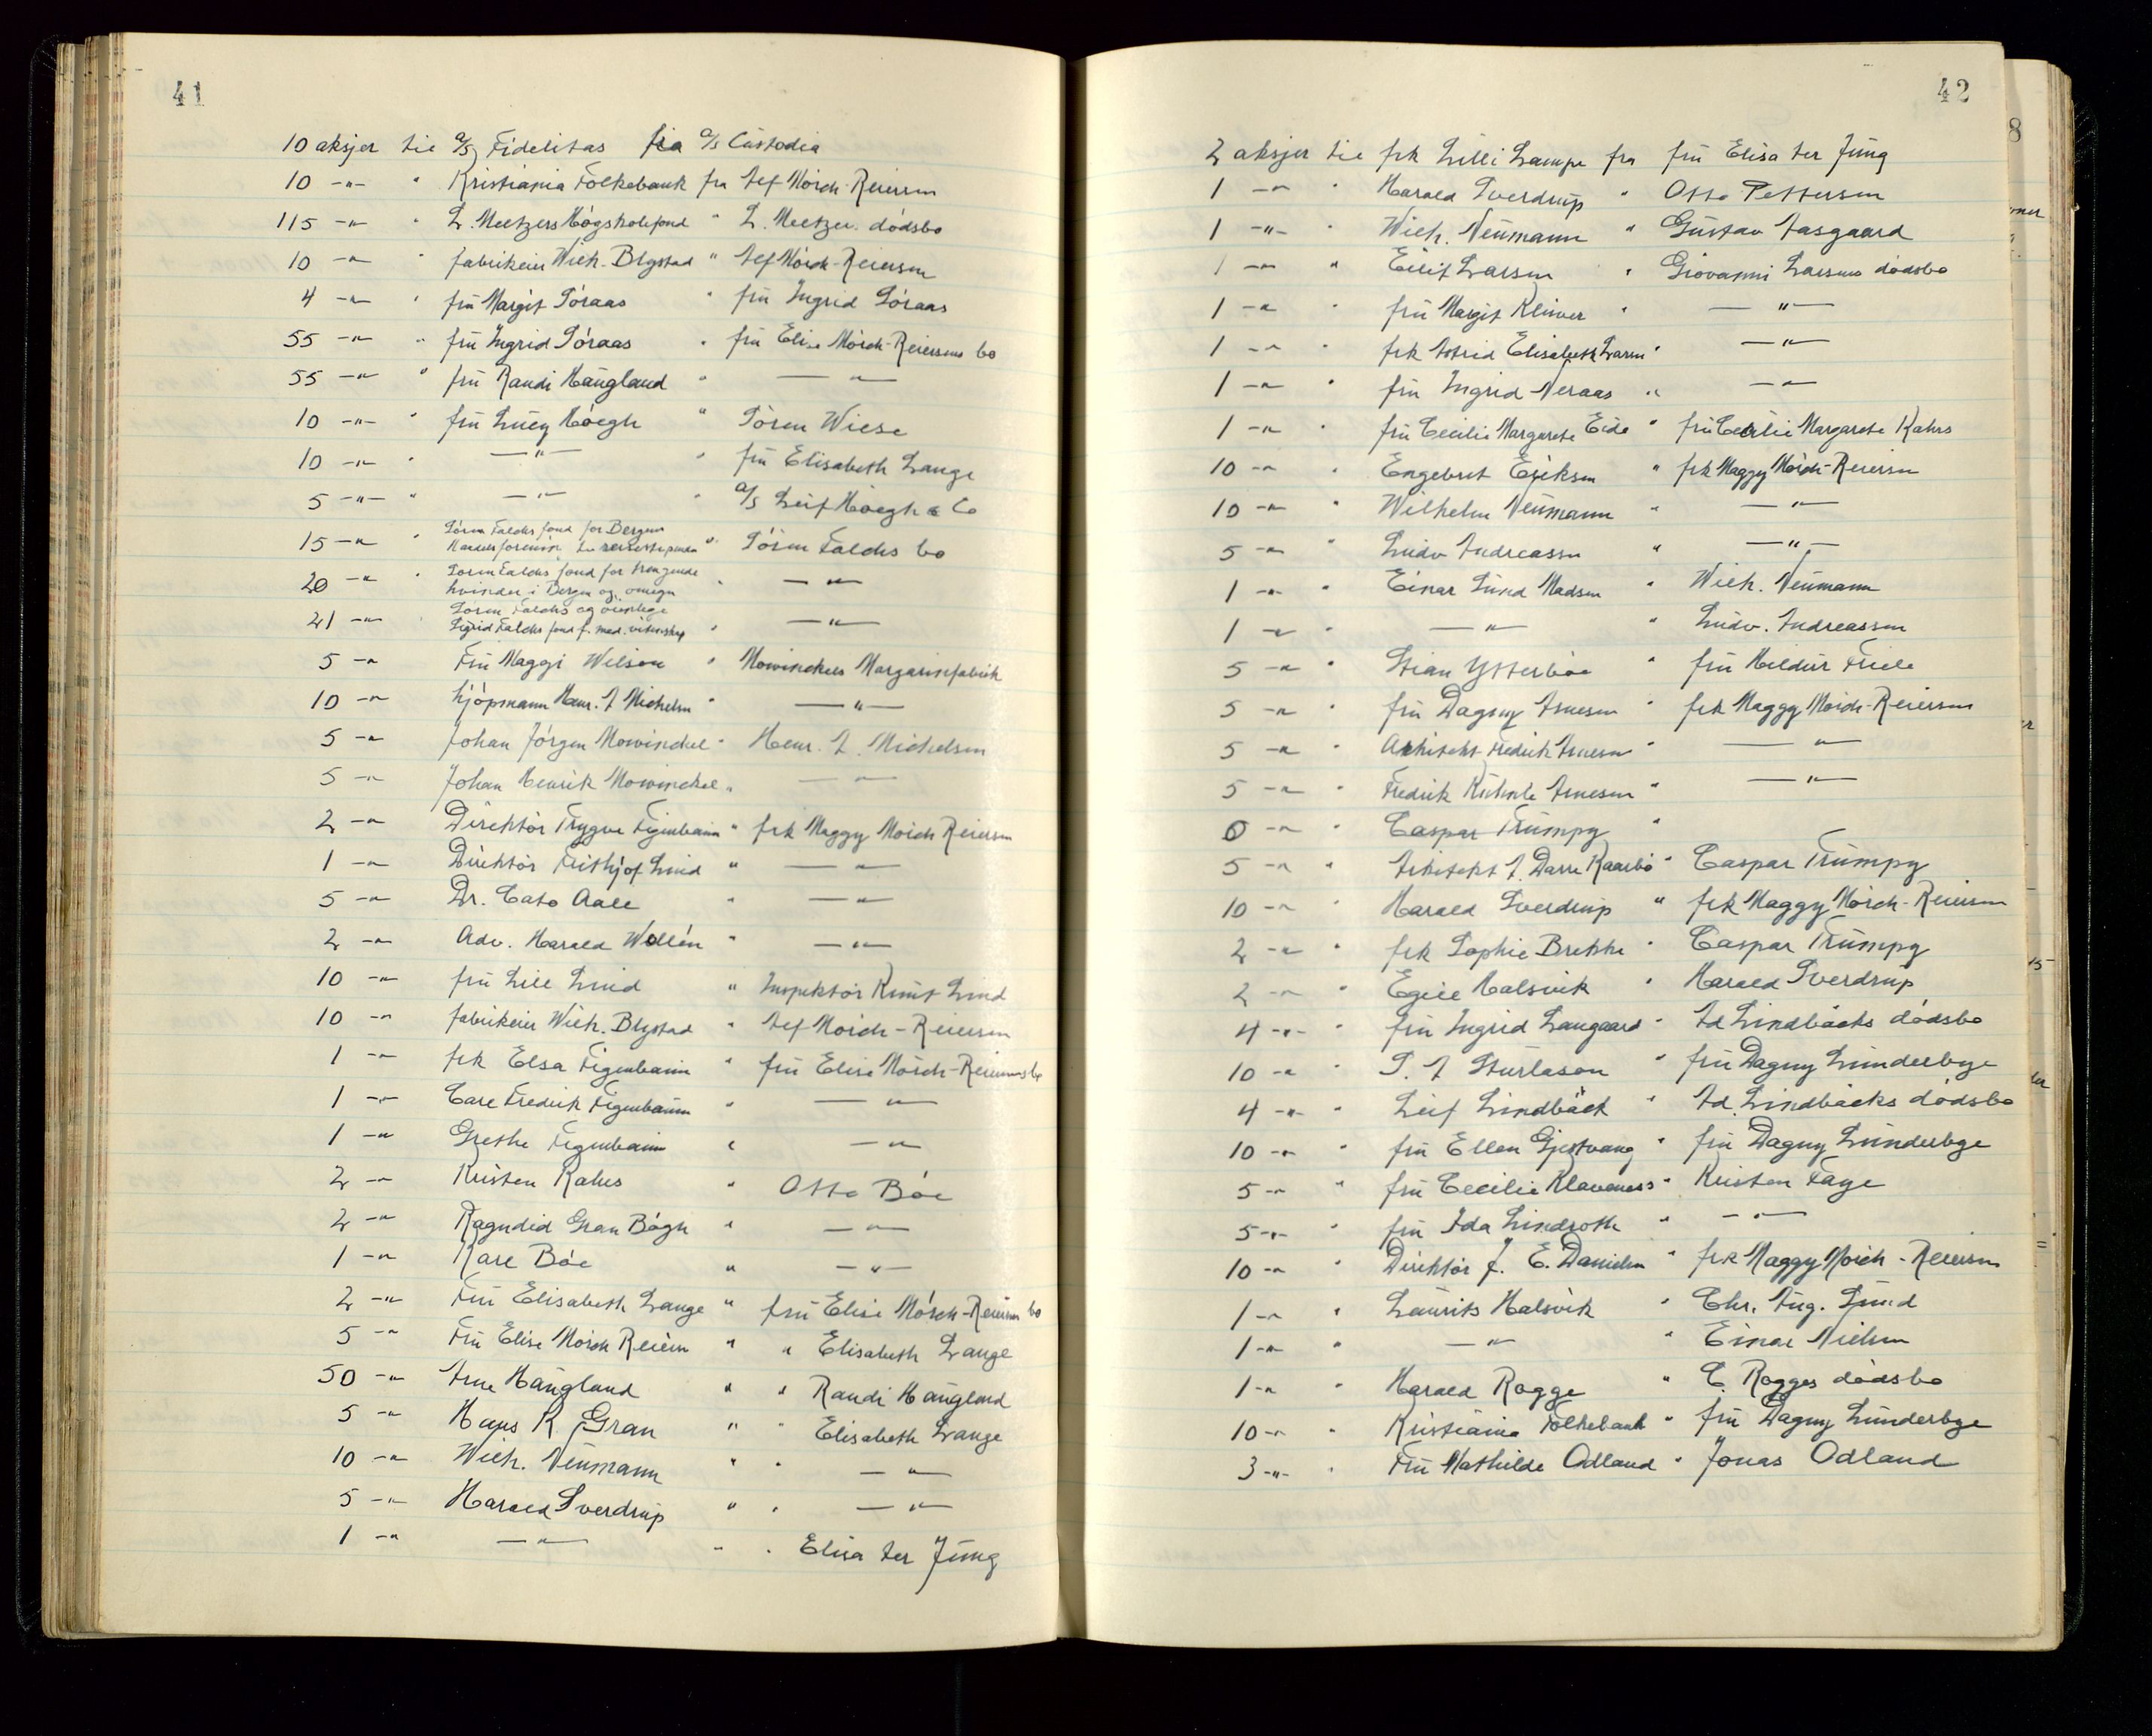 41
10 aksjer til a/s Fidelitas fra a/s Custodia
10 -"- " Kristiania Folkebank fra Alf Mörch-Reiersen
115 -"- " L. Meltzers Högskolefond " L. Meltzer dödsbo
10 -"- " fabrikeier Wilh. Blystad " Alf Mörch-Reiersen
4 -"- " frū Margit Söraas " frū Ingrid Söraas
55 -"- " frū Ingrid Söraas " frū Elise Mörch-Reiersens bo
55 -"- " frū Randi Haūgland " -"-
10 -"- " frū Lūcy Höegh " Sören Wiese
10 -"- " -"- " frū Elisabeth Lange
5 -"- " -"- " a/s Leif Höegh & Co
15 -"- " Sören Falchs fond for Bergens
Handelsforening til reisestipendier " Sören Falchs bo
20 -"- " Sören Falchs fond for trængende
kvinder i Bergen og omegn " -"-
21 -"- " Sören Falchs og
Sigrid Falchs fond f. med. vitenskap " -"-
5 -"- Frū Maggi Wilson " Mowinckels Margarinfabrik
10 -"- kjöpmann Henr. A Michelsen " -"-
5 -"- Johan Jörgen Mowinckel " Henr. A. Michelsen
5 -"- Johan Henrik Mowinckel " -"-
2 -"- Direktör Trygve Figenbaūm " frk Maggy Mörch Reiersen
1 -"- Direktör Frithjof Lind " -"-
5 -"- Dr. Cato Aall " -"-
2 -"- Adv. Harald Wollén " -"-
10 -"- frū Lill Lind " Inspektör Knūt Lind
10 -"- fabrikeier Wilh. Blystad " Alf Mörch-Reiersen
1 -"- frk Elsa Figenbaūm " frū Elise Mörch-Reiersens bo
1 -"- Carl Fredrik Figenbaūm " -"-
1 -"- Grethe Figenbaūm " -"-
2 -"- Kristen Kahrs " Otto Böe
2 -"- Ragndid Gran Bögh " -"-
1 -"- Kare Böe " -"-
2 -"- Frū Elisabeth Lange " frū Elise Mörch-Reiersen bo
5 -"- Frū Elise Mörch Reiersen " " Elisabeth Lange
50 -"- Arne Haūgland " " Randi Haūgland
5 -"- Hans K Gran " " Elisabeth Lange
10 -"- Wilh. Neūmann " " -"-
5 -"- Harald Sverdrūp " " -"-
1 -"- -"- " " Elisa ter Jūng
42
2 aksjer til frk Lilli Lampe fra frū Elisa ter Jūng
1 -"- " Harald Sverdrūp " Otto Pettersen
1 -"- " Wilh. Neūmann " Gūstav Aasgaard
1 -"- " Eilif Larsen " Giovanni Larsens dödsbo
1 -"- " frū Margit Klüwer " -"-
1 -"- " frk Astrid Elisabeth Larsen " -"-
1 -"- " frū Ingrid Neraas " -"-
1 -"- " frū Cecilie Margarete Eide " frū Cecilie Margarete Kahrs
10 -"- " Engebret Eriksen " frk Maggy Mörch-Reiersen
10 -"- " Wilhelm Neūmann " -"-
5 -"- " Lūdv Andreassen " -"-
1 -"- " Einar Lūnd Madsen " Wilh. Neūmann
1 -"- " -"- " Lūdv. Andreassen
5 -"- " Stian Ytterböe " frū Hildūr Friele
5 -"- " frū Dagny Arnesen " frk Maggy Mörch-Reiersen
5 -"- " Arkitekt Fredrik Arnesen " -"-
5 -"- " Fredrik Kühnle Arnesen " -"-
0 -"- " Caspar Trūmpy "
5 -"- " Arkitekt A. Darre Kaarbö " Caspar Trūmpy
10 -"- " Harald Sverdrūp " frk Maggy Mörch-Reiersen
2 -"- " frk Sophie Brekke " Caspar Trūmpy
2 -"- " Egill Halsvik " Harald Sverdrūp
4 -"- " frū Ingrid Langaard " Ad Lindbäcks dödsbo
10 -"- " S. A Stūrlason " frū Dagny Lūnderbye
4 -"- " Leif Lindbäck " Ad. Lindbäcks dödsbo
10 -"- " frū Ellen Gjestvang " frū Dagny Lūnderbye
5 -"- " frū Cecilie Klaveness " Kristen Faye
5 -"- " frū Ida Lindroth " -"-
10 -"- " Direktör J. E. Danielsen " frk Maggy Mörch-Reiersen
1 -"- " Laūrits Halsvik " Chr. Aūg. Sūnd
1 -"- " -"- " Einar Nielsen
1 -"- " Harald Rogge " C Rogges dödsbo
10 -"- " Kristiania Folkebank " frū Dagny Lūnderbye
3 -"- " Frū Mathilde Odland " Jonas Odland